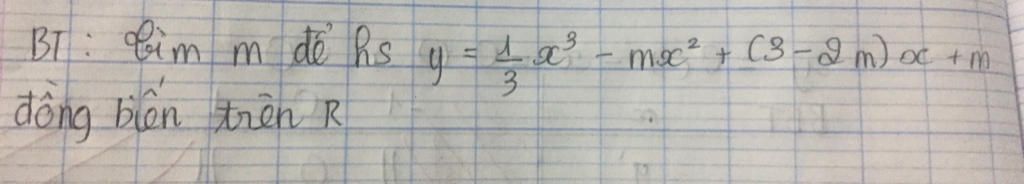 BT : Tìm m để hs y = 1/3 x³ - mx² + (3 - 2m)x + m
đồng biến trên R